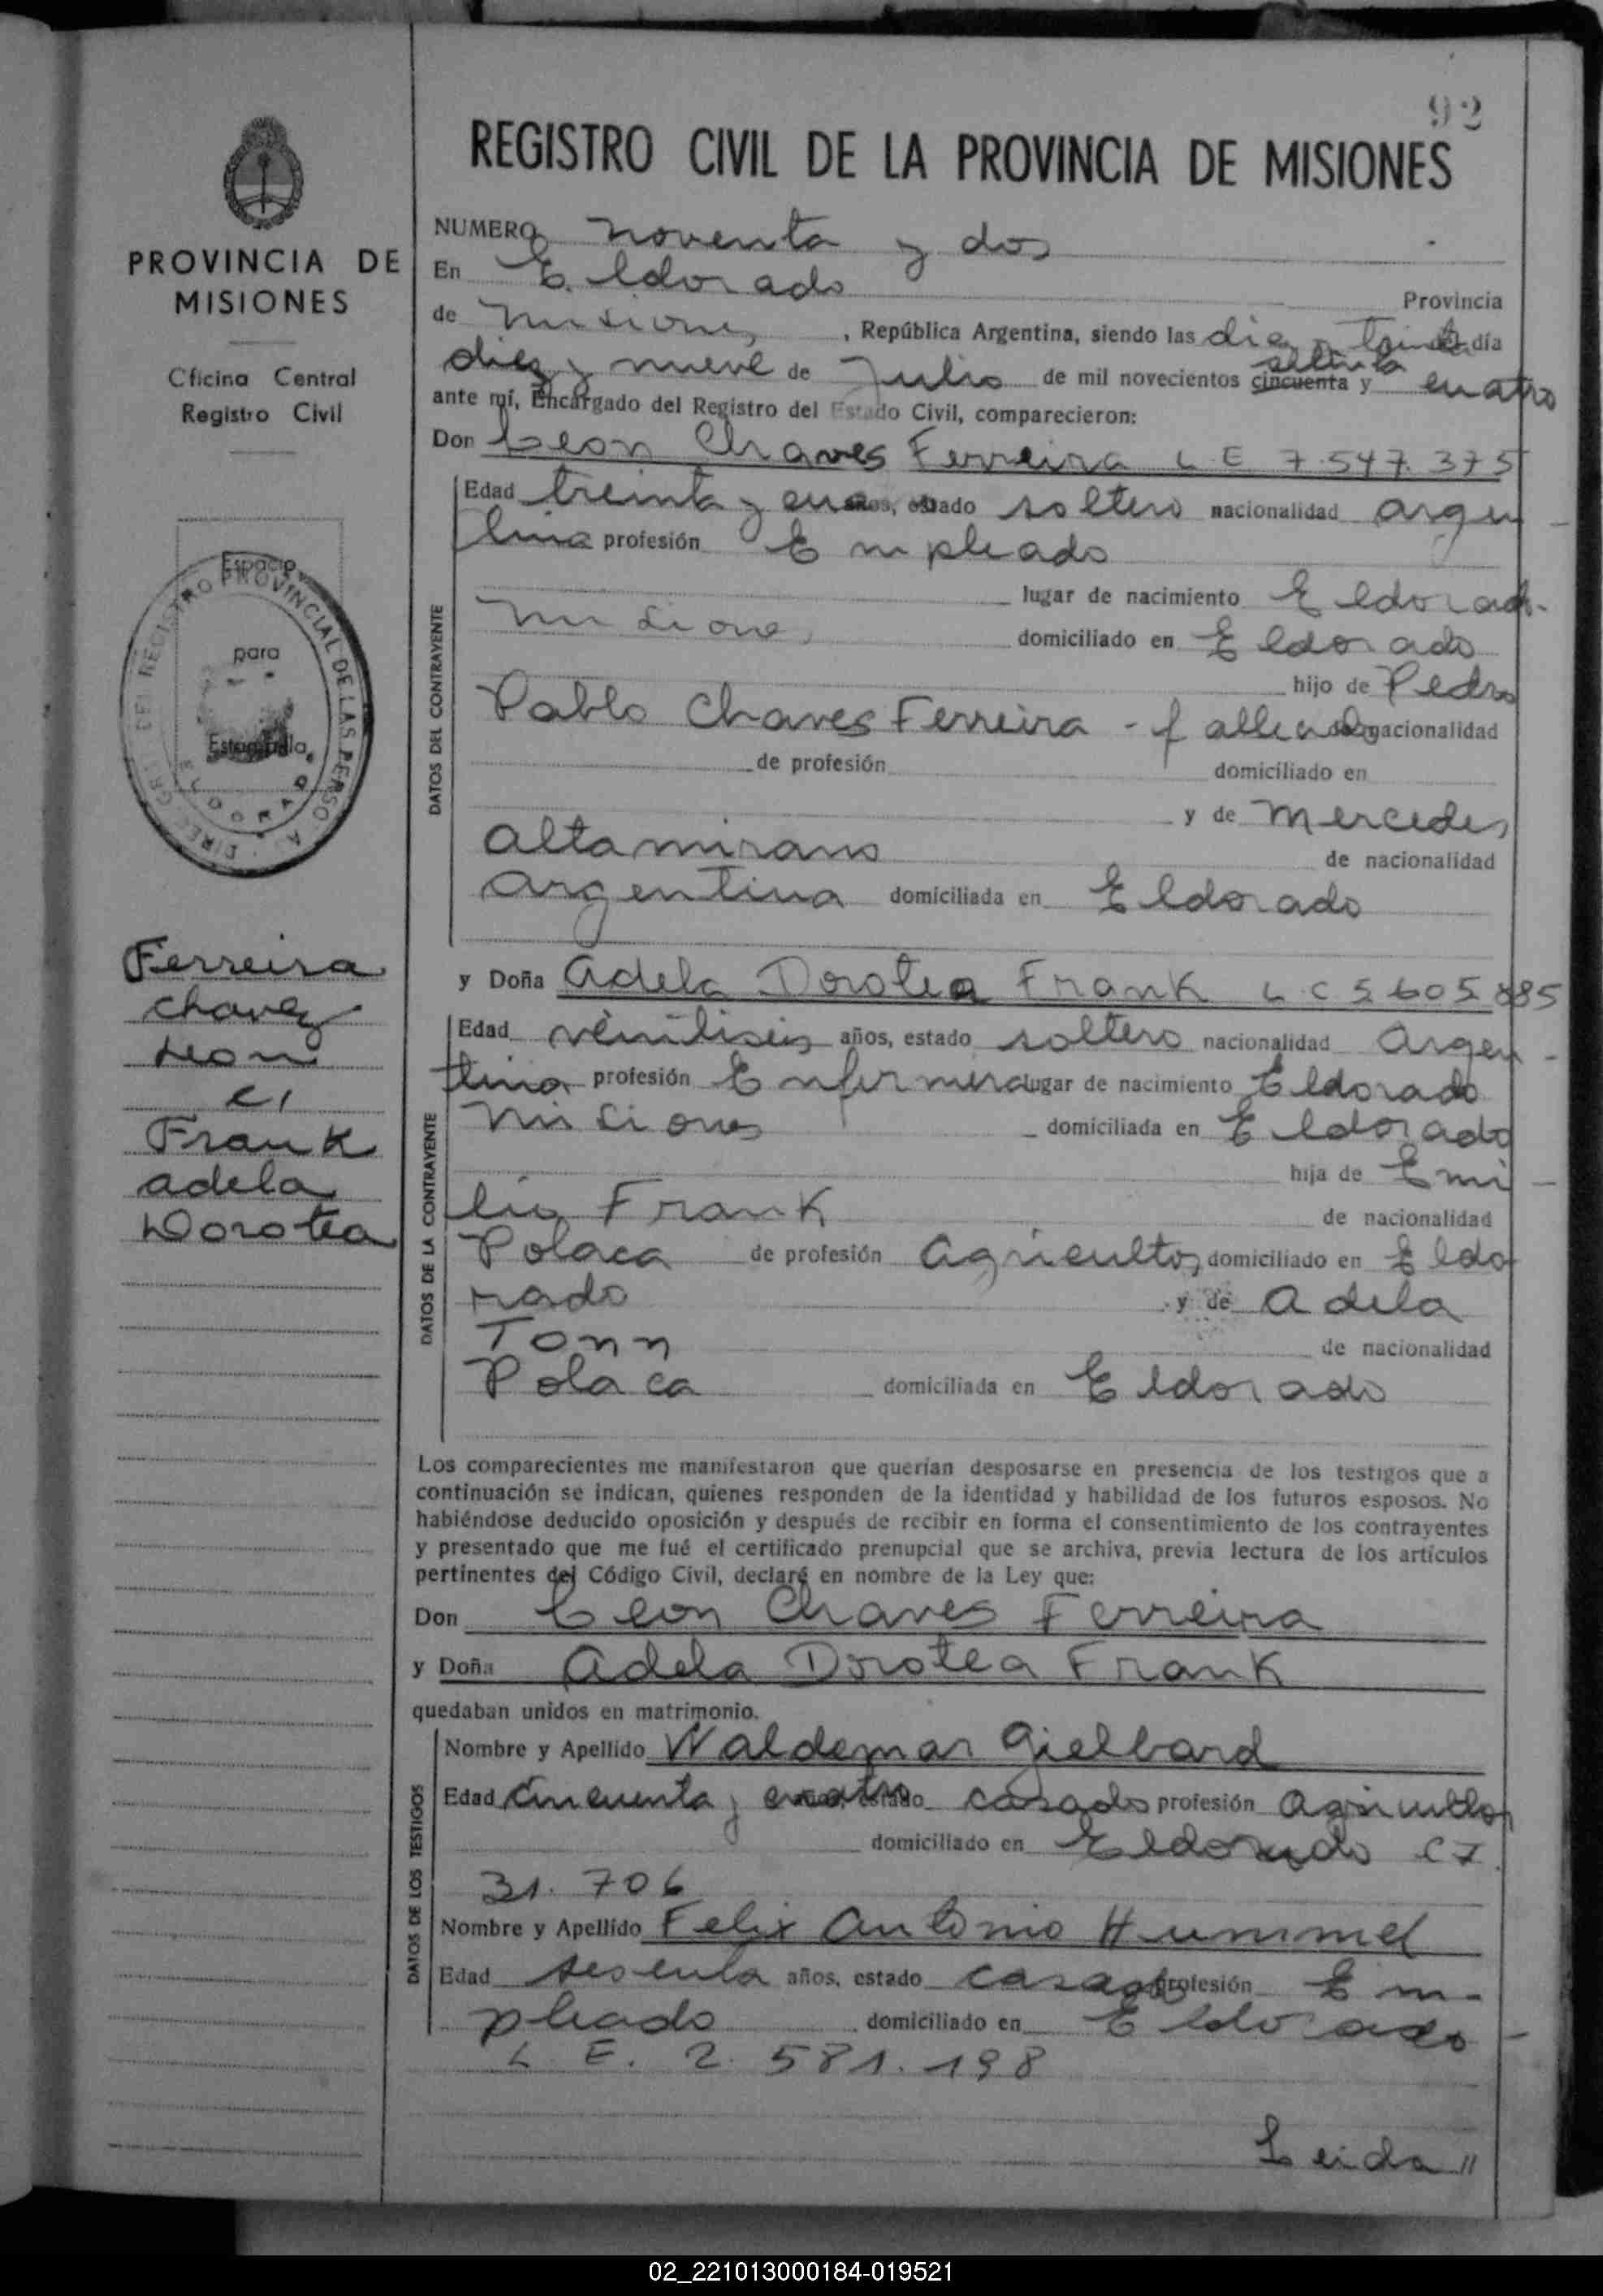 92
REGISTRO CIVIL DE LA PROVINCIA DE MISIONES
PROVINCIA DE
MISIONES
Oficina Central
Registro Civil
Espacio
para
Estampilla
Ferreira
Chavez
Leon
c/
Frank
adela
Dorotea
NUMERO noventa y dos
En Eldorado Provincia
de Misiones, República Argentina, siendo las diez y treinta día
diez y nueve de Julio de mil novecientos cincuenta setenta y cuatro
ante mí, Encargado del Registro del Estado Civil, comparecieron:
Don Leon Chaves Ferreira L E 7.547.375
Edad treinta y años, estado soltero nacionalidad argen-
tina profesión Empleado
lugar de nacimiento Eldorado-
Misiones domiciliado en Eldorado
hijo de Pedro
Pablo Chaves Ferreira - fallecido nacionalidad
de profesión domiciliado en
y de Mercedes
altamirano de nacionalidad
argentina domiciliada en Eldorado
y Doña Adela Dorotea Frank L C 5 605 885
Edad veintiseis años, estado soltero nacionalidad Argen-
tina profesión Enfermera lugar de nacimiento Eldorado
Misiones domiciliada en Eldorado
hija de Emi-
lio Frank de nacionalidad
Polaca de profesión agricultor domiciliado en Eldo
rado y de Adela
Tonn de nacionalidad
Polaca domiciliada en Eldorado
DATOS DEL CONTRAYENTE
DATOS DE LA CONTRAYENTE
Los comparecientes me manifestaron que querían desposarse en presencia de los testigos que a
continuación se indican, quienes responden de la identidad y habilidad de los futuros esposos. No
habiéndose deducido oposición y después de recibir en forma el consentimiento de los contrayentes
y presentado que me fué el certificado prenupcial que se archiva, previa lectura de los artículos
pertinentes del Código Civil, declaré en nombre de la Ley que:
Don Leon Chaves Ferreira
y Doña Adela Dorotea Frank
quedaban unidos en matrimonio.
DATOS DE LOS TESTIGOS
Nombre y Apellido Waldemar Gielbard
Edad Cincuenta y cuatro años, estado casado profesión Agricultor
domiciliado en Eldorado C I
31.706
Nombre y Apellido Felix Antonio Hummel
Edad sesenta años, estado casado profesión Em-
pleado domiciliado en Eldorado -
L. E. 2.581.198
Leida //
02_221013000184-019521